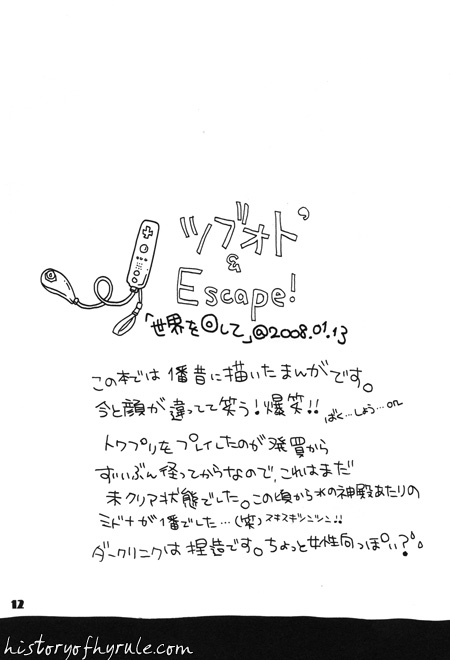 ツブオト
&
Escape!
「世界を◎して」@2008.01.13
この本では1番昔に描いたまんがです。
今と顔が違ってて笑う!爆笑!!
ばく…しょう…orz
トワプリをプレイしたのが発買から
ずいぶん経ってからなので、これはまだ
未クリア状態でした。この頃から水の神殿あたりの
ミドナが1番でした…(笑)スキスギシンシン!!
ダークリンクは捏造です。ちょっと女性向っぽい?
12
historyofhyrule.com